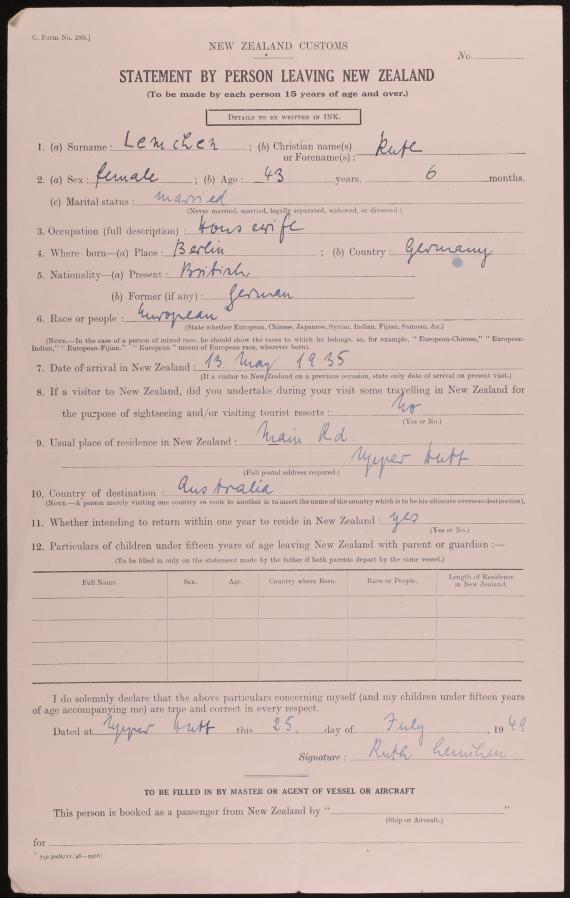 C. Form No. 289.]
NEW ZEALAND CUSTOMS
No.
STATEMENT BY PERSON LEAVING NEW ZEALAND
(To be made by each person 15 years of age and over.)
DETAILS TO BE WRITTEN IN INK.
1. (a) Surname : Lemchen ; (b) Christian name(s)
or Forename(s) : Ruth
2. (a) Sex : female ; (b) Age : 43 years, 6 months.
(c) Marital status : married
(Never married, married, legally separated, widowed, or divorced.)
3. Occupation (full description) : Housewife
4. Where born—(a) Place : Berlin ; (b) Country : Germany
5. Nationality—(a) Present : British
(b) Former (if any) : German
6. Race or people : European
(State whether European, Chinese, Japanese, Syrian, Indian, Fijian, Samoan, &c.)
(NOTE.—In the case of a person of mixed race, he should show the races to which he belongs, as, for example, "European-Chinese," "European-
Indian," "European-Fijian." "European" means of European race, wherever born).
7. Date of arrival in New Zealand : 13 May 1935
(If a visitor to New Zealand on a previous occasion, state only date of arrival on present visit.)
8. If a visitor to New Zealand, did you undertake during your visit some travelling in New Zealand for
the purpose of sightseeing and/or visiting tourist resorts : No
(Yes or No.)
9. Usual place of residence in New Zealand : Main Rd.
Upper Hutt
(Full postal address required.)
10. Country of destination : Australia
(NOTE.—A person merely visiting one country en route to another is to insert the name of the country which is to be his ultimate overseas destination).
11. Whether intending to return within one year to reside in New Zealand : yes
(Yes or No.)
12. Particulars of children under fifteen years of age leaving New Zealand with parent or guardian :—
(To be filled in only on the statement made by the father if both parents depart by the same vessel.)
Full Name. Sex. Age. Country where Born. Race or People. Length of Residence
in New Zealand.
I do solemnly declare that the above particulars concerning myself (and my children under fifteen years
of age accompanying me) are true and correct in every respect.
Dated at Upper Hutt this 25. day of July, 1949
Signature : Ruth Lemchen
TO BE FILLED IN BY MASTER OR AGENT OF VESSEL OR AIRCRAFT
This person is booked as a passenger from New Zealand by " "
(Ship or Aircraft.)
for